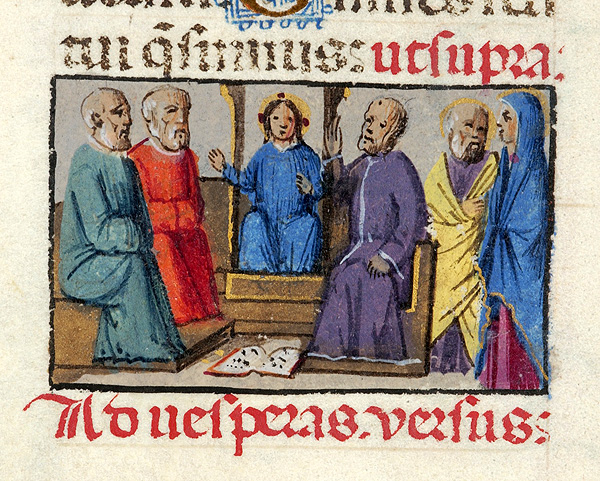 tui q̃sumus: ut supra:
Ad uesperas. versus: